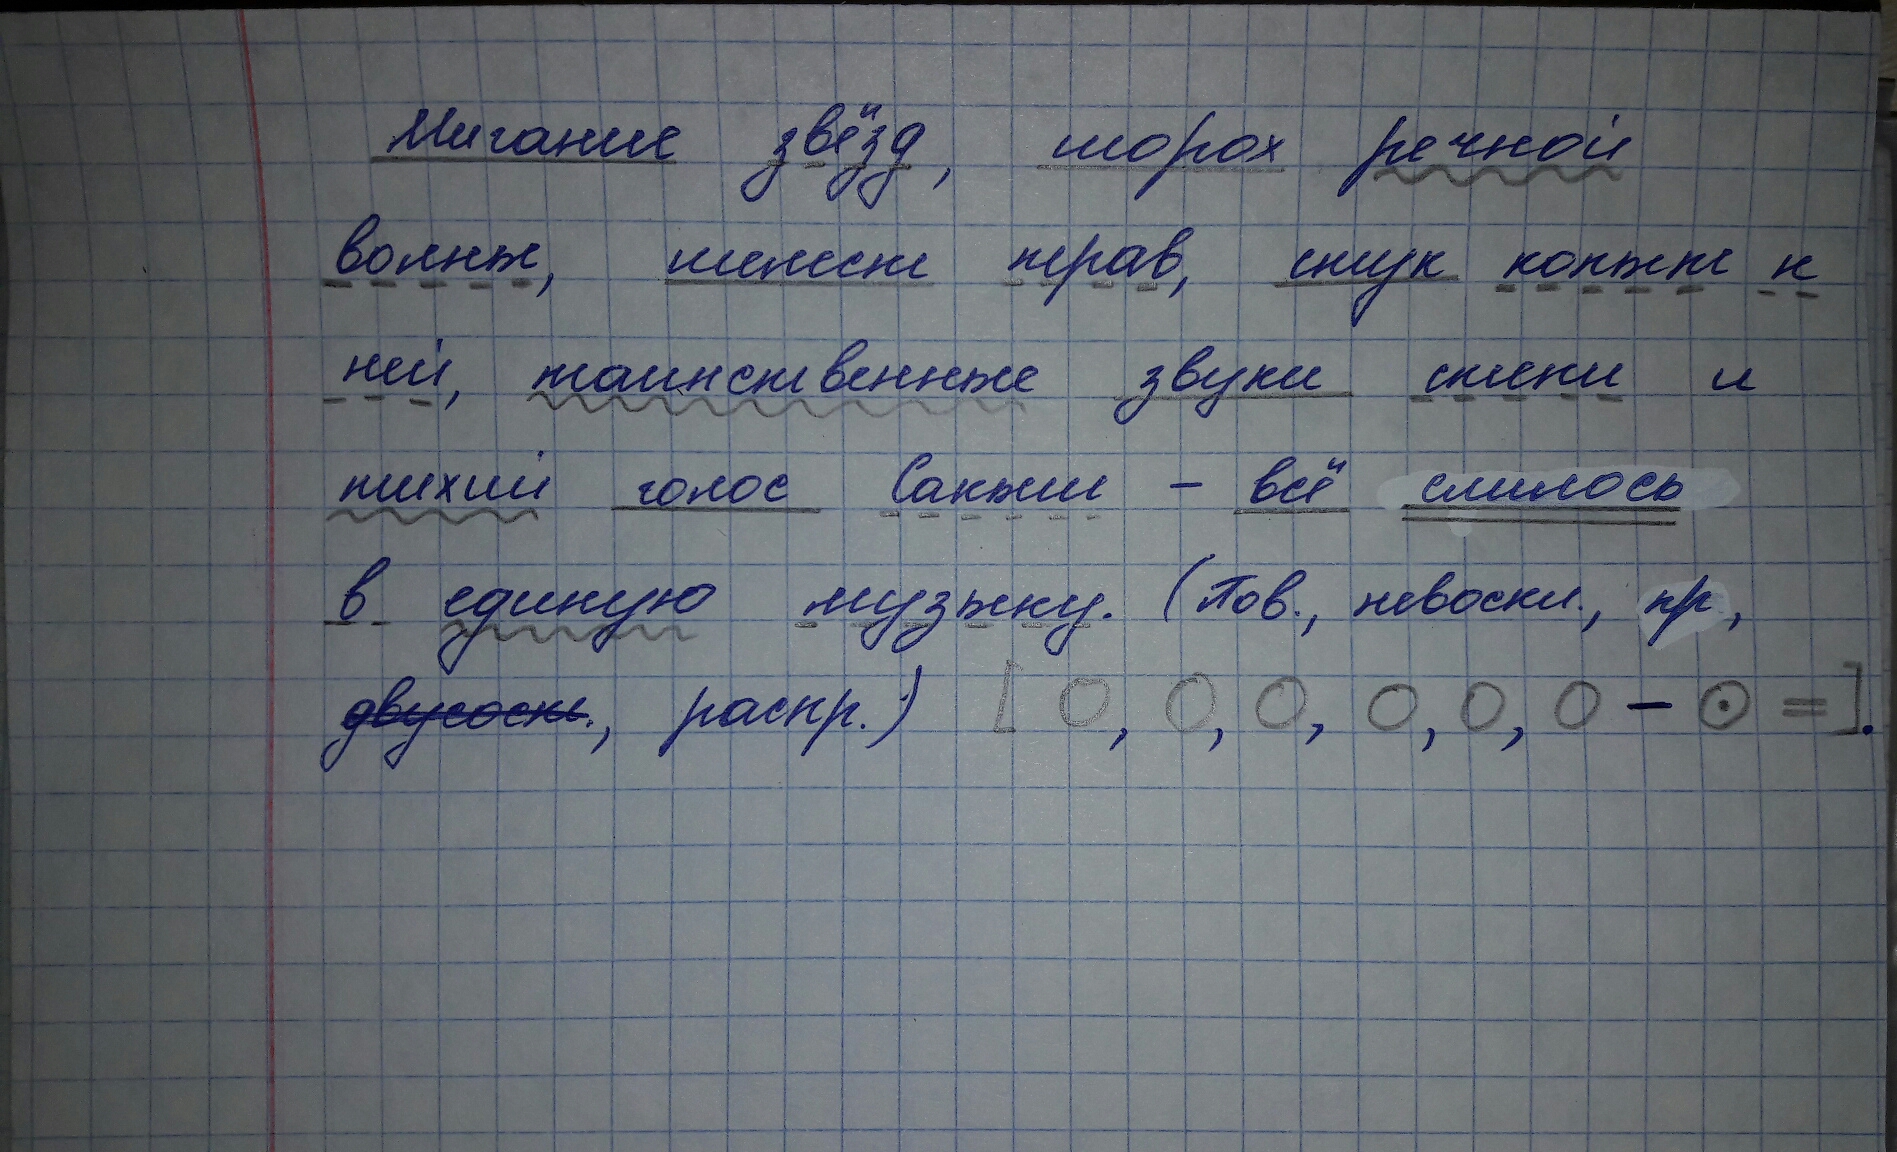 Мигание звёзд, шорох речной
волны, шелест трав, стук копыт ко
ней, таинственные звуки степи и
тихий голос Сакыш – всё слилось
в единую музыку. (Пов., невоскл., пр.,
двусост., распр.) [ О, О, О, О, О, О – ⊙ = ].